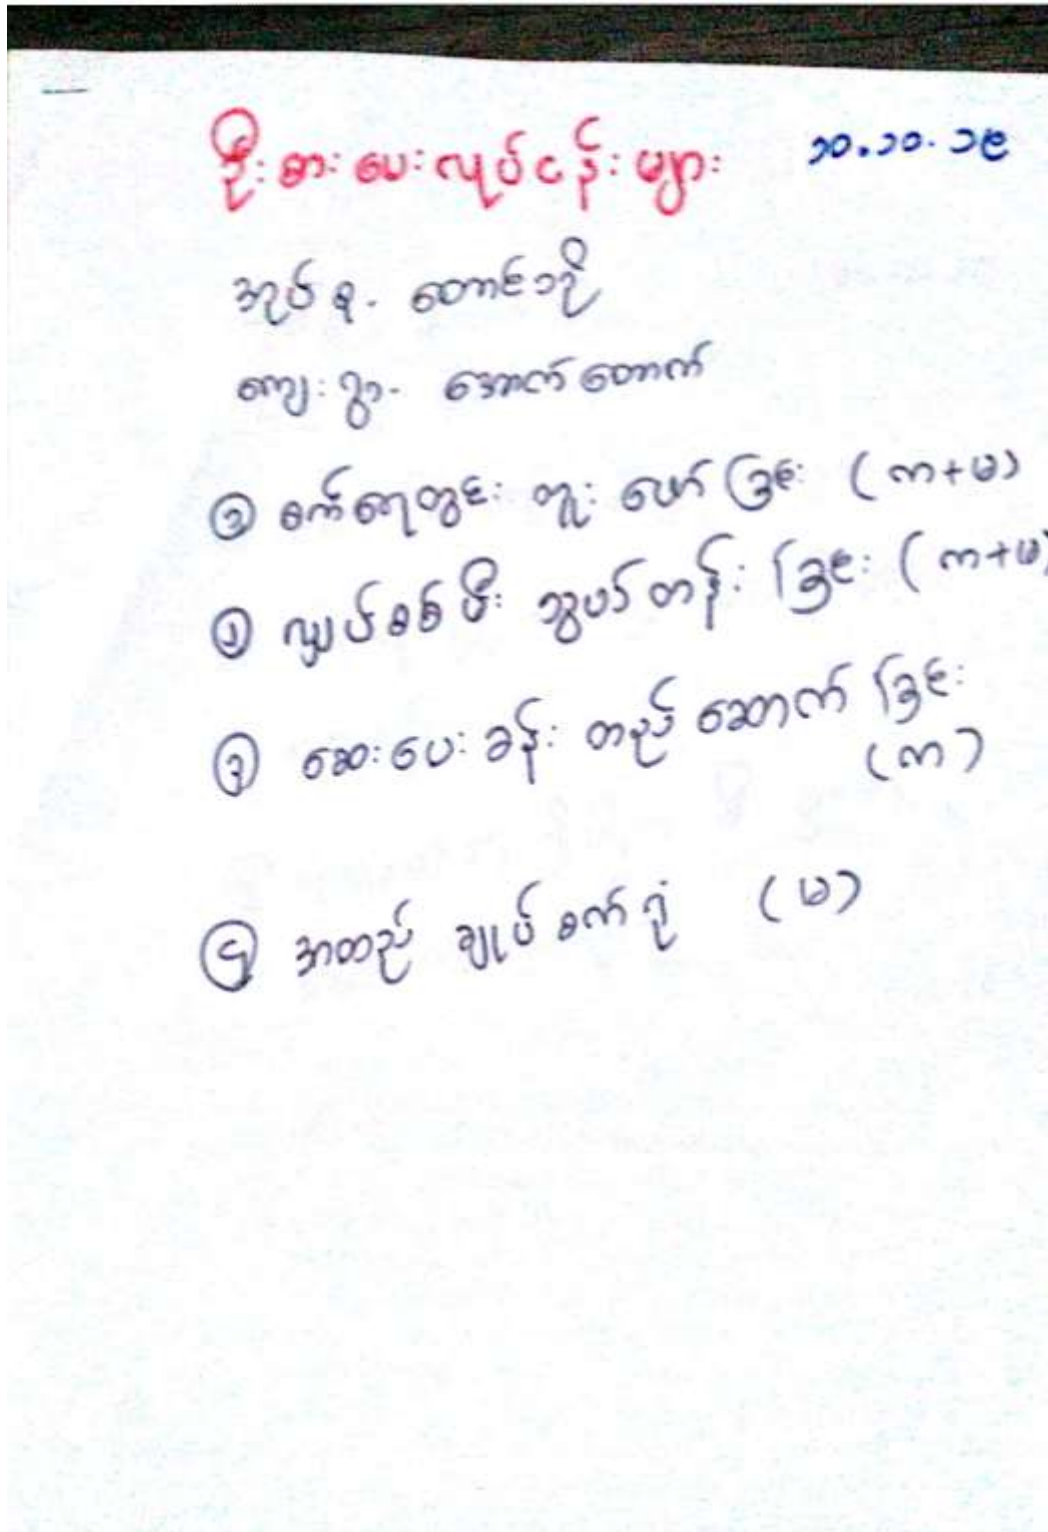 ဦးစားပေးလုပ်ငန်းများ ၁၀.၁၀.၁၉
အုပ်စု- တောင်သို့
ကျေးရွာ- အောက်တောက်
၁ စက်ရေတွင်း တူးဖော်ခြင်း (က+မ)
၂ လျှပ်စစ်မီး သွယ်တန်းခြင်း (က+မ)
၃ ဆေးပေးခန်း တည်ဆောက်ခြင်း
(က)
၄ အထည်ချုပ်စက်ရုံ (မ)